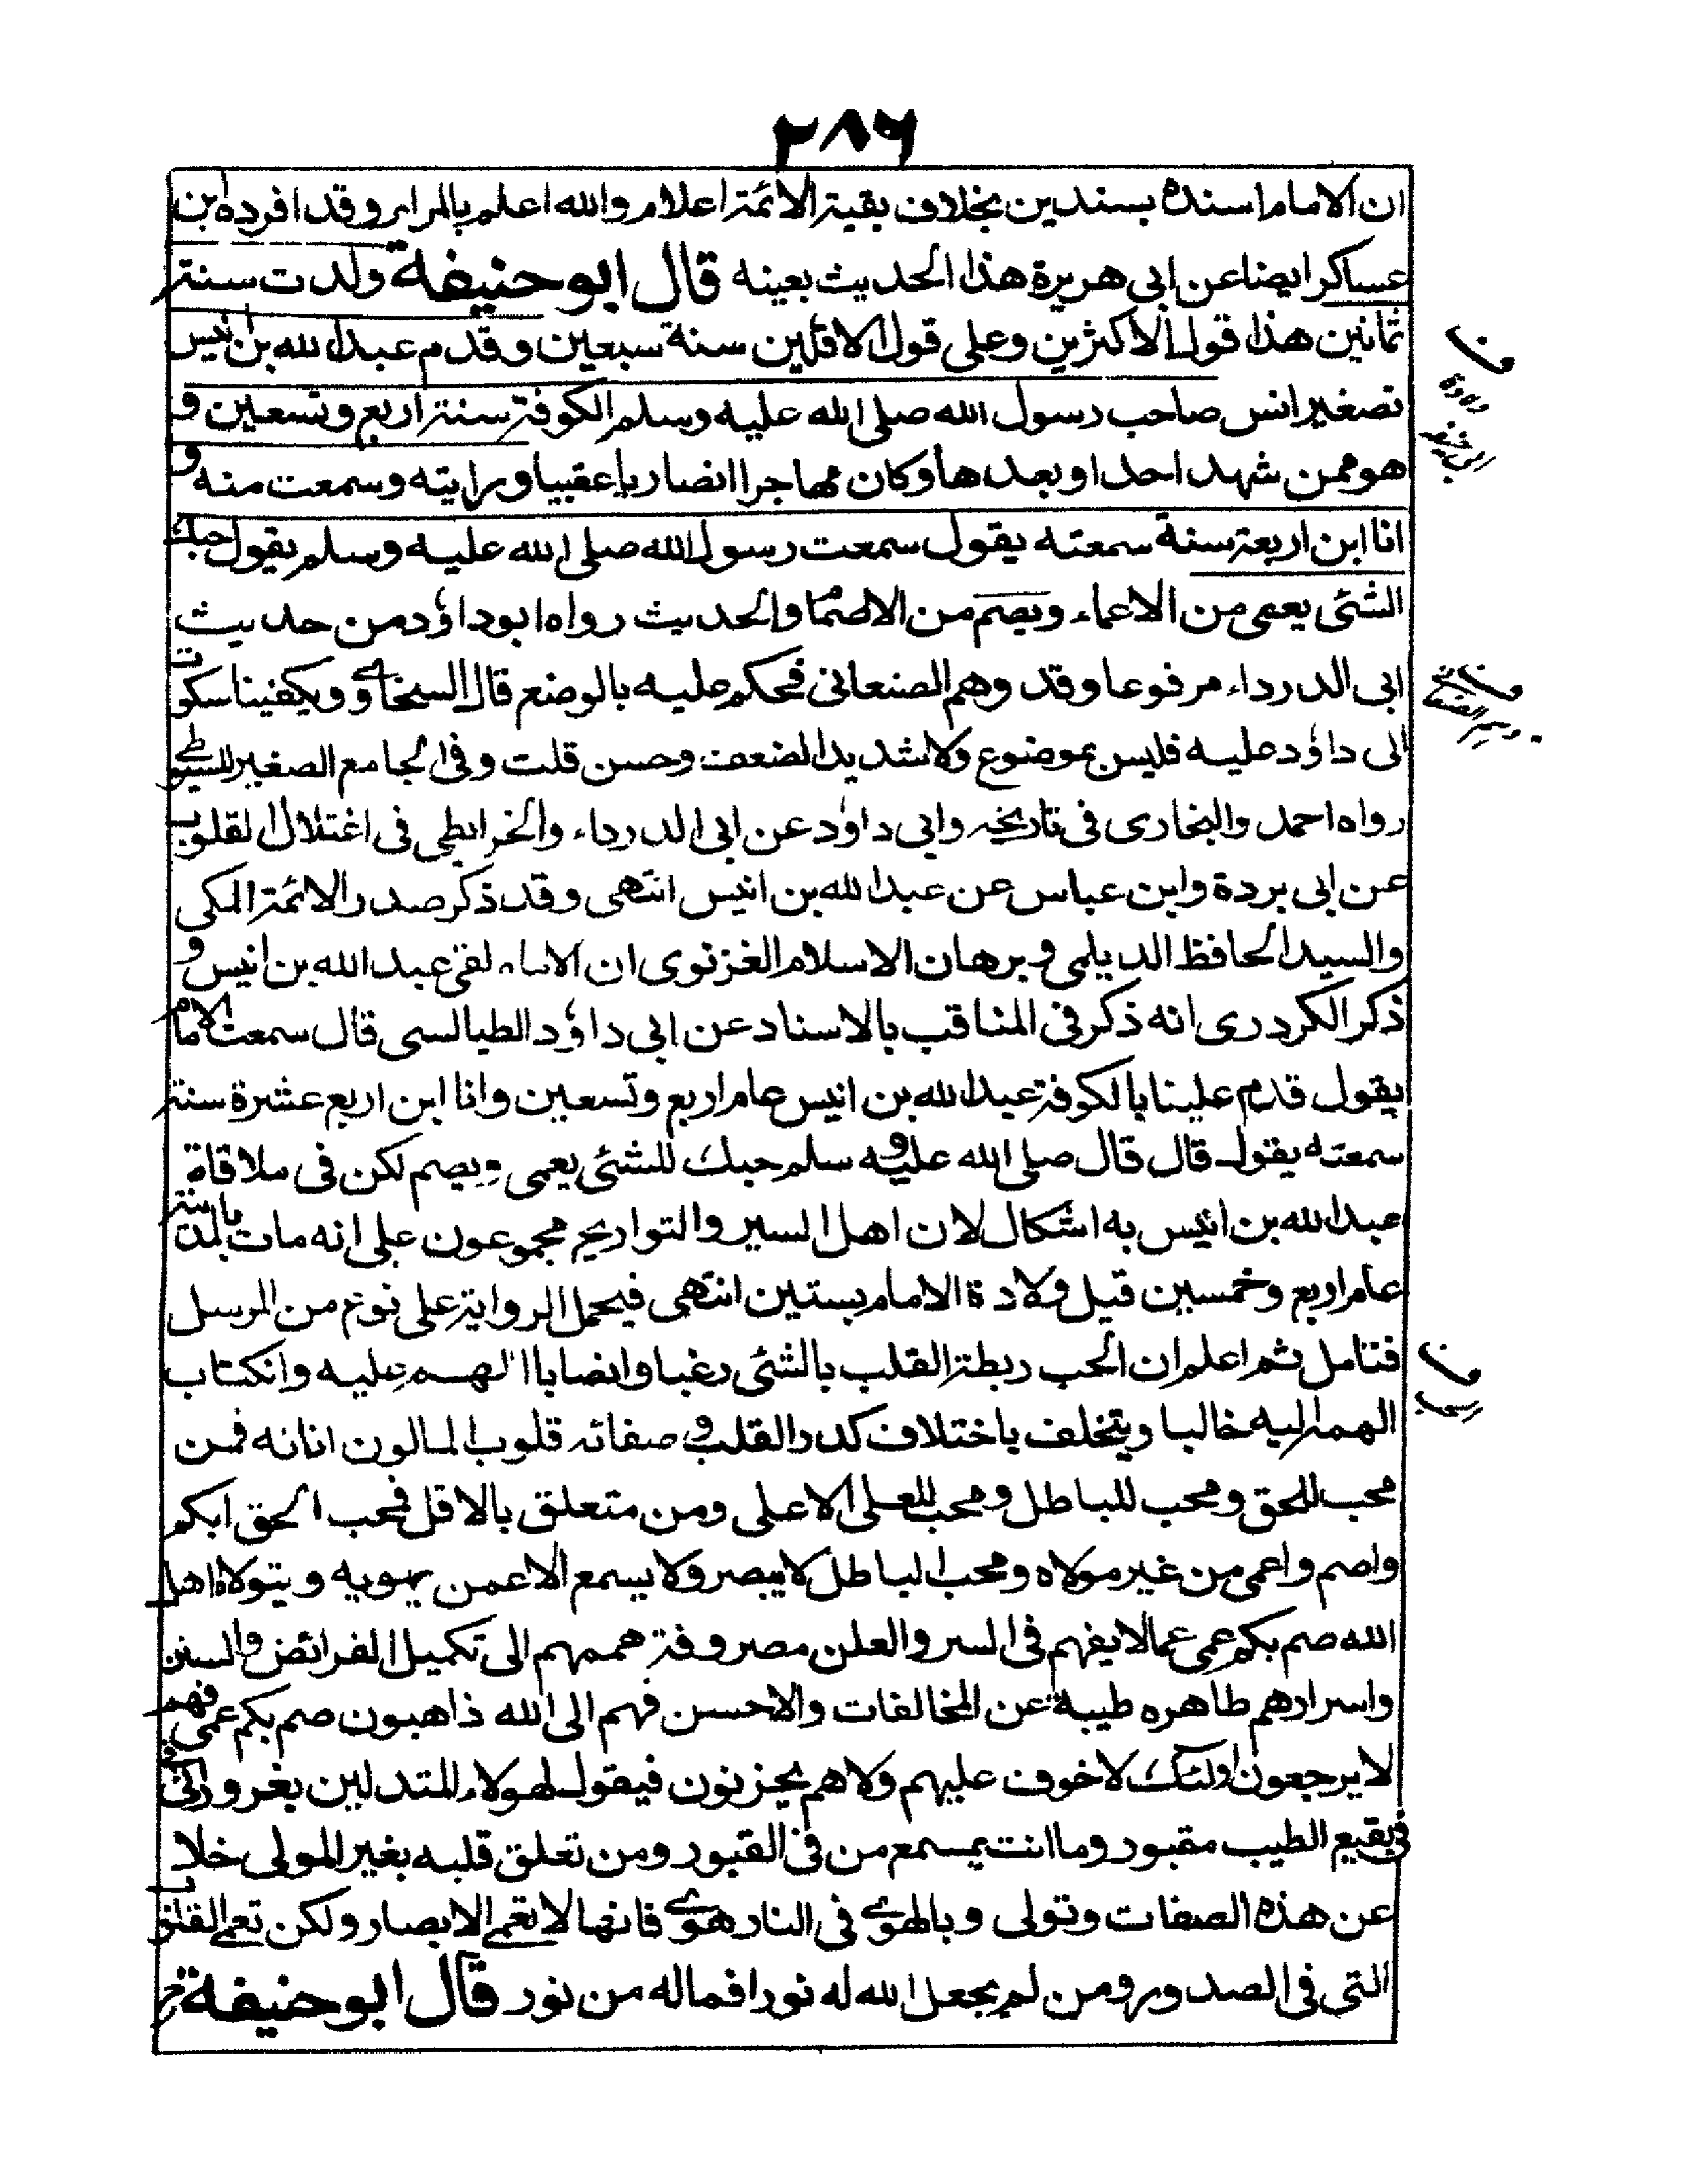 ٢٨٦
ان الامام اسنده بسندين بخلاف بقية الائمة اعلام والله اعلم بالمرام وقد افرده بن
عساكر ايضا عن ابى هريرة هذا الحديث بعينه قال ابوحنيفة ولدت سنة
ثمانين هذا قول الاكثرين وعلى قول الاقلين سنة سبعين وقدم عبد الله بن انيس
تصغير انس صاحب رسول الله صلى الله عليه وسلم الكوفة سنة اربع وتسعين و
هو ممن شهد احدا وبعدها وكان مهاجرا انصاريا عقبيا ورايته وسمعت منه و
انا ابن اربعة سنة سمعته يقول سمعت رسول الله صلى الله عليه وسلم يقول حبك
الشئ يعمى من الاعماء ويصم من الاصماء والحديث رواه ابوداؤد من حديث
ابى الدرداء مرفوعا وقد وهم الصنعانى فحكم عليه بالوضع قال السخاوى ويكفينا سكوت
ابى داؤد عليه فليس بموضوع ولا شديد الضعف وحسن قلت وفى الجامع الصغير للسيوطى
رواه احمد والبخارى فى تاريخه وابى داؤد عن ابى الدرداء والخرائطى فى اعتلال القلوب
عن ابى بردة وابن عباس عن عبد الله بن انيس انتهى وقد ذكر صدر الائمة المكى
والسيد الحافظ الديلمى وبرهان الاسلام الغزنوى ان الامام لقى عبد الله بن انيس و
ذكر الكردرى انه ذكر فى المناقب بالاسناد عن ابى داؤد الطيالسى قال سمعت الامام
يقول قدم علينا بالكوفة عبد الله بن انيس عام اربع وتسعين وانا ابن اربع عشرة سنة
سمعته يقول قال قال صلى الله عليه وسلم حبك للشئ يعمى ويصم لكن فى ملاقاة
عبد الله بن انيس به اشكال لان اهل السير والتواريخ مجموعون على انه مات بالمدينة
عام اربع وخمسين قبل ولادة الامام بستين انتهى فيحمل الرواية على نوع من المرسل
فتامل ثم اعلم ان الحب ربطة القلب بالشئ رغبا وانضابا الهم عليه وانكتاب
الهم اليه غالبا ويتخلف باختلاف كدر القلب وصفائه قلوب المالون انانه فمن
محب للحق ومحب للباطل ومحب للعلى الاعلى ومن متعلق بالاقل فمحب الحق ابكم
واصم واعمى من غير مولاه ومحب الباطل لا يبصر ولا يسمع الا عمن يهويه ويتولاه اهل
الله صم بكم عمى عمالا يفهم فى السر والعلن مصروفة هممهم الى تكميل الفرائض والسنن
واسرارهم طاهره طيبة عن المخالفات والاحسن فهم الى الله ذاهبون صم بكم عمى فهم
لا يرجعون اولئك لا خوف عليهم ولا هم يحزنون فيقول لهولاء المتدلين بغرور
فى بقيع الطيب مقبور وما انت بمسمع من فى القبور ومن تعلق قلبه بغير المولى خلا
عن هذه الصفات وتولى وبالهوى فى النار هوى فانها لا تعمى الابصار ولكن تعمى القلوب
التى فى الصدور ومن لم يجعل الله له نورا فماله من نور قال ابوحنيفة